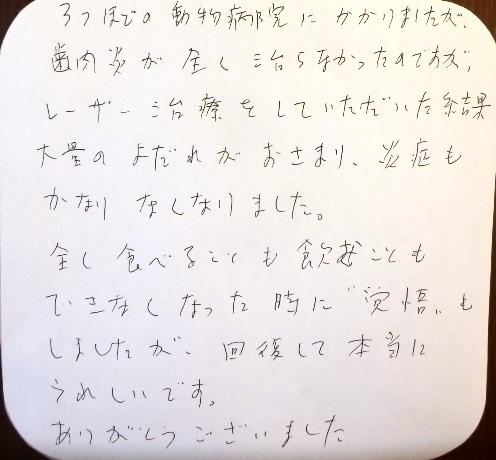 3つほどの動物病院にかかりましたが、
歯肉炎が全く治らなかったのですが、
レーザー治療をしていただいた結果
大量のよだれがおさまり、炎症も
かなりなくなりました。
全く食べることも飲むことも
できなくなった時に"覚悟"も
しましたが、回復して本当に
うれしいです。
ありがとうございました